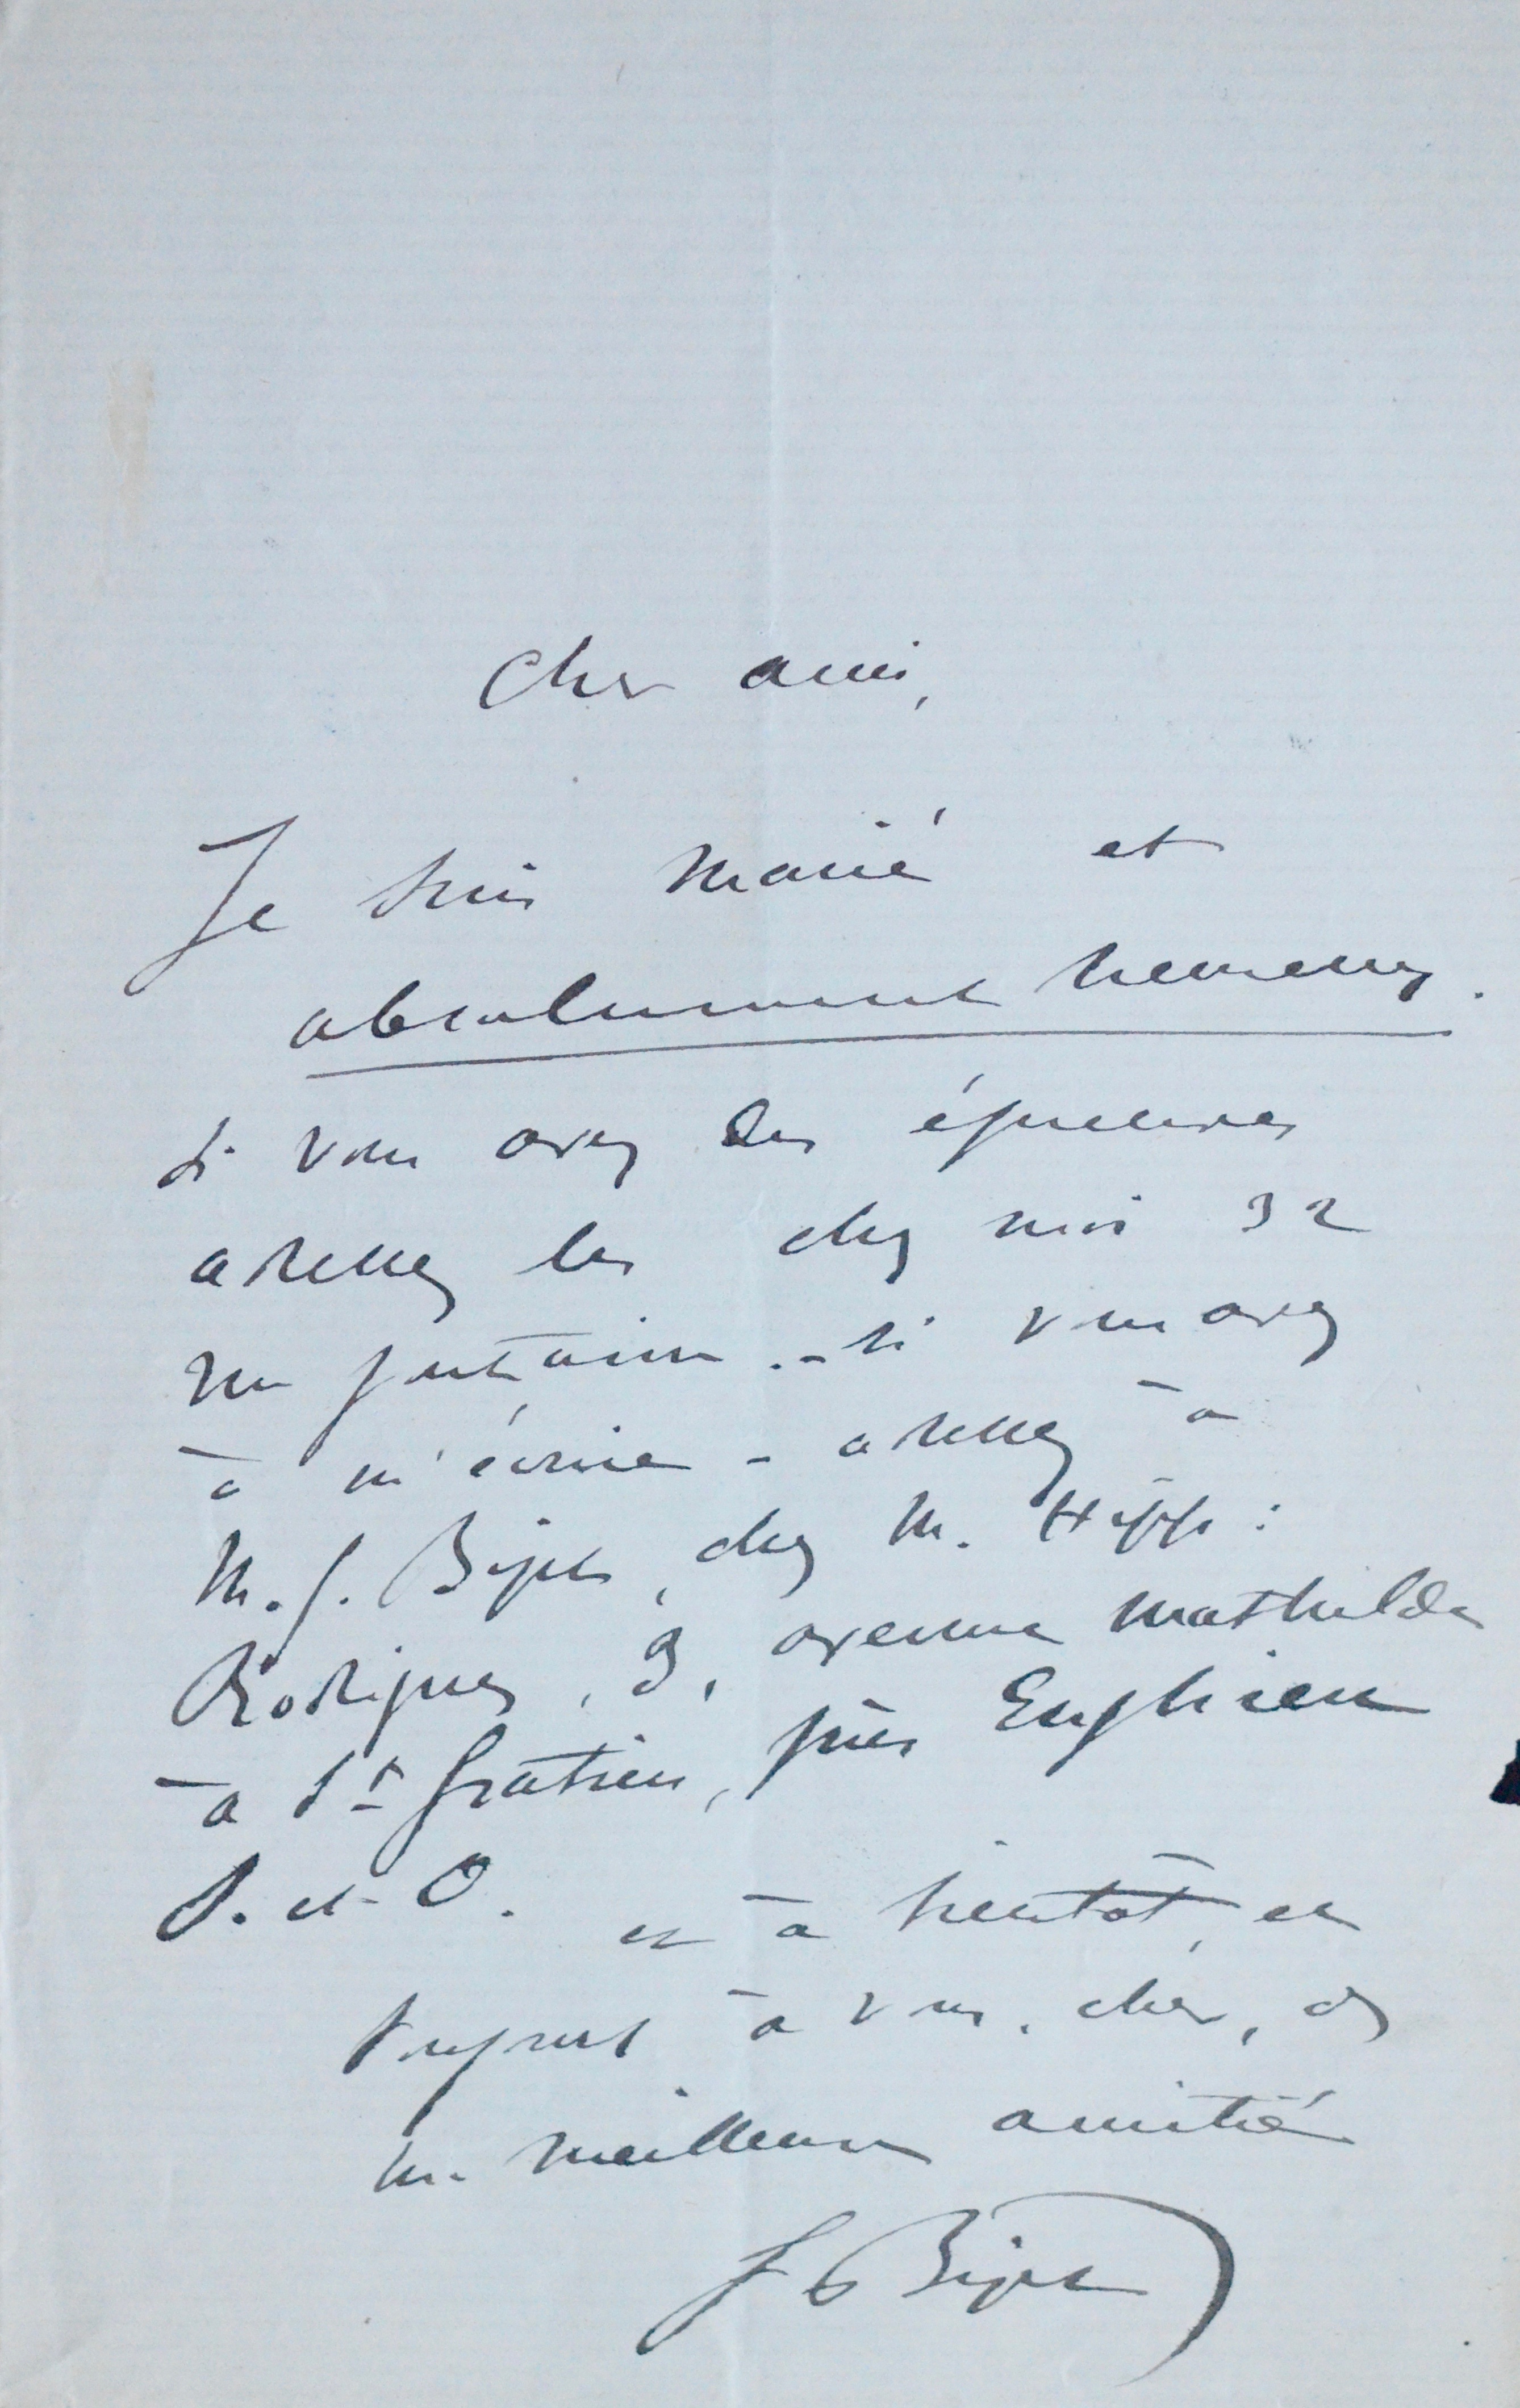 Cher ami,
Je suis marié et
absolument heureux.
Si vous avez des épreuves
adressez les chez moi 32
rue fontaine. - Si vous avez
à m'écrire - adressez à
M. G. Bizet, chez M. Hipp:
Rodrigues, 9, avenue Mathilde
à St Gratien, près Enghien
S. et O. et à bientôt, et
toujours à vous, cher, de
ma meilleure amitié
G Bizet